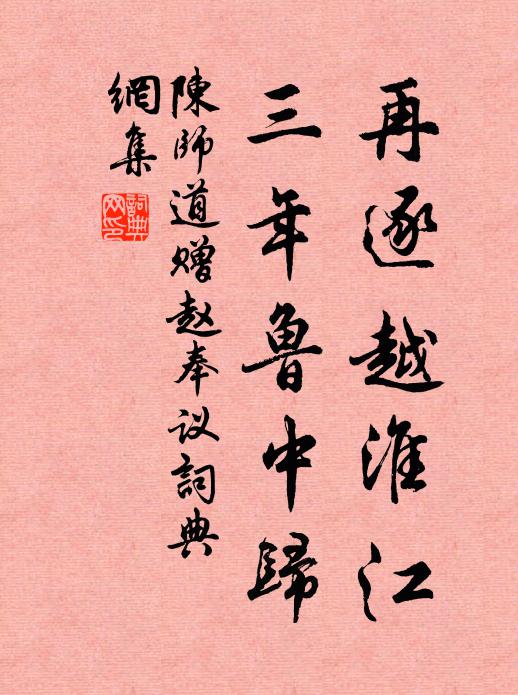 再逐越淮江
三年鲁中歸
陳師道赠赵奉议詞典
網集
詞典网印